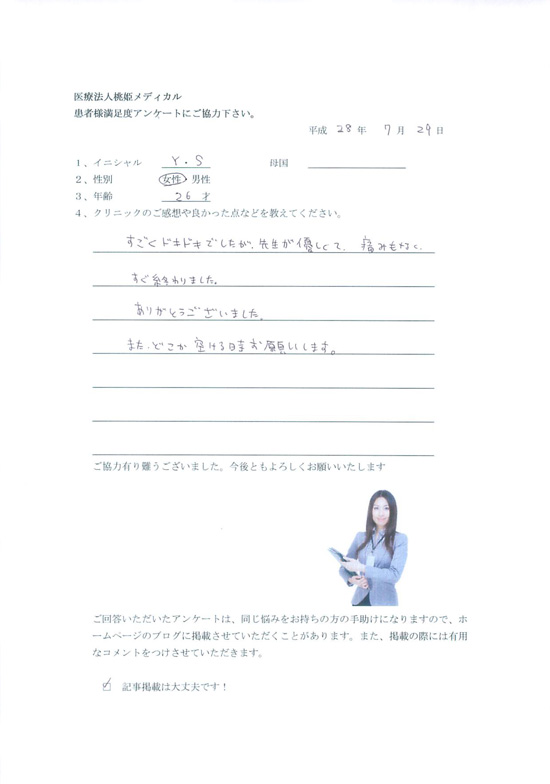 医療法人桃姫メディカル
患者様満足度アンケートにご協力下さい。
平成 28 年 7 月 29 日
1、イニシャル Y.S 母国
2、性別 女性・男性
3、年齢 26 才
4、クリニックのご感想や良かった点などを教えてください。
すごくドキドキでしたが、先生が優しくて、痛みもなく、
すぐ終わりました。
ありがとうございました。
また、どこか空ける時お願いします。
ご協力有り難うございました。今後ともよろしくお願いいたします
ご回答いただいたアンケートは、同じ悩みをお持ちの方の手助けになりますので、ホ
ームページのブログに掲載させていただくことがあります。また、掲載の際には有用
なコメントをつけさせていただきます。
記事掲載は大丈夫です！